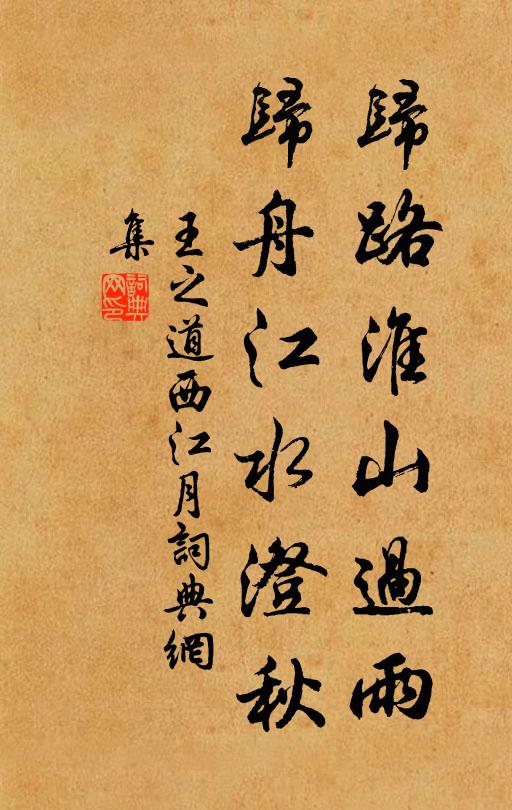 歸路淮山過雨
歸舟江水澄秋
王之道西江月詞典網
集
詞典
网印